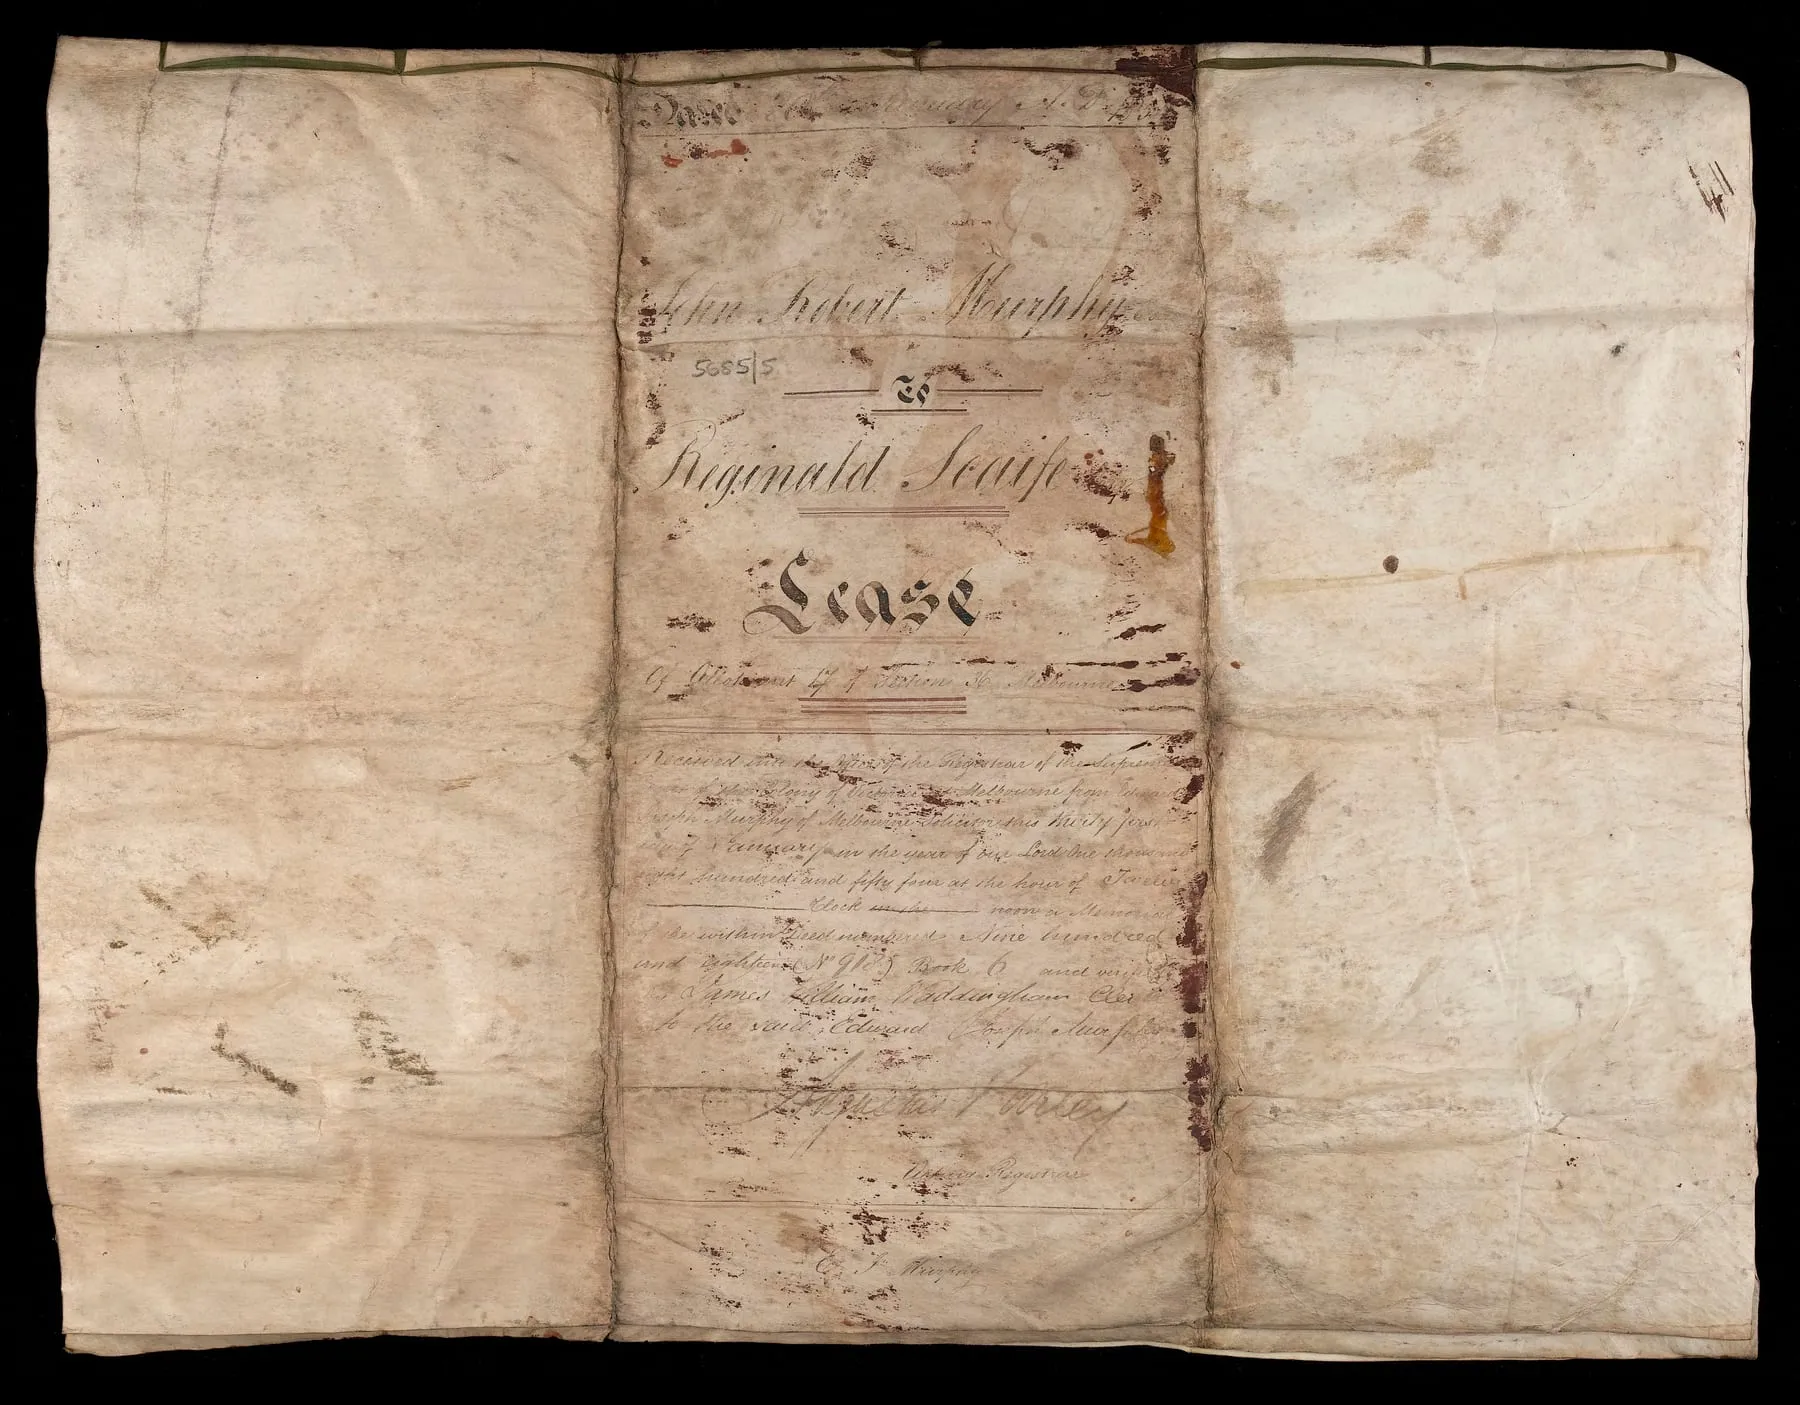 Dated January A.D. 185
John Robert Murphy
5685/5
To
Reginald Scaife
Lease
Of Allotment 17 of Section 36 Melbourne
Received into the Office of the Registrar of the Supreme
of the Colony of Victoria at Melbourne from Edward
Joseph Murphy of Melbourne Solicitor this thirty first
day of January in the year of our Lord One thousand
eight hundred and fifty four at the hour of Twelve
Clock in the noon a Memorial
of the within Deed numbered Nine hundred
and eighteen (No 918) Book 6 and verified
by James William Waddingham Clerk
to the said Edward Joseph Murphy
Acting Registrar
E J Murphy